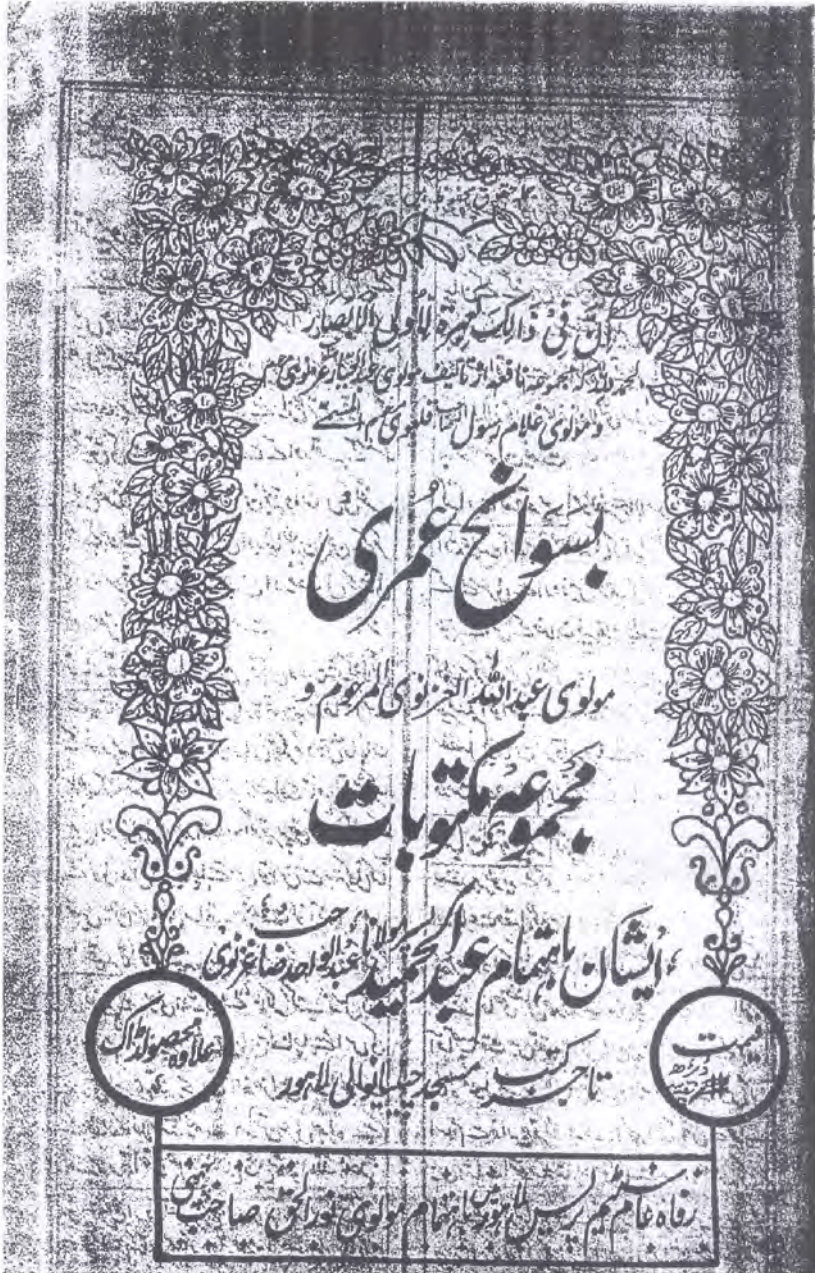 جملہ حقوق محفوظ ہیں
اِنَّ فِیْ ذَالِکَ لَعِبْرَةً لِّاُولِی الْاَبْصَار
الحمد للہ کہ مجموعہ نافعہ از تالیف مولوی عبدالجبار غزنوی
و مولوی غلام رسول صاحب قلعوی
بسوانح عُمری
مولوی عبداللہ الغزنوی المرحوم و
مجموعہ مکتوبات
ایشان باہتمام عبدالحمید بن مولانا عبدالواحد صاحب غزنوی
تاجر کتب مسجد چینیانوالی لاہور
قیمت
علاوہ محصول ڈاک
رفاہ عام سٹیم پریس لاہور میں باہتمام مولوی نورالحق صاحب